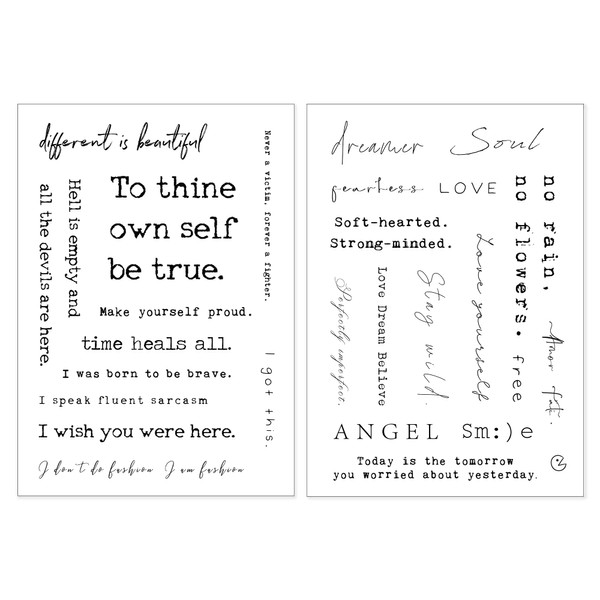 different is beautiful
Hell is empty and
all the devils are here.
To thine
own self
be true.
Never a victim, forever a fighter.
Make yourself proud.
time heals all.
I was born to be brave.
I speak fluent sarcasm
I got this.
I wish you were here.
I don't do fashion I am fashion
dreamer Soul
fearless LOVE
no rain,
no flowers.
Soft-hearted.
Strong-minded.
Love yourself
Stay wild.
Love Dream Believe
Perfectly imperfect.
free
Amor fati.
ANGEL Sm:)e
Today is the tomorrow
you worried about yesterday.